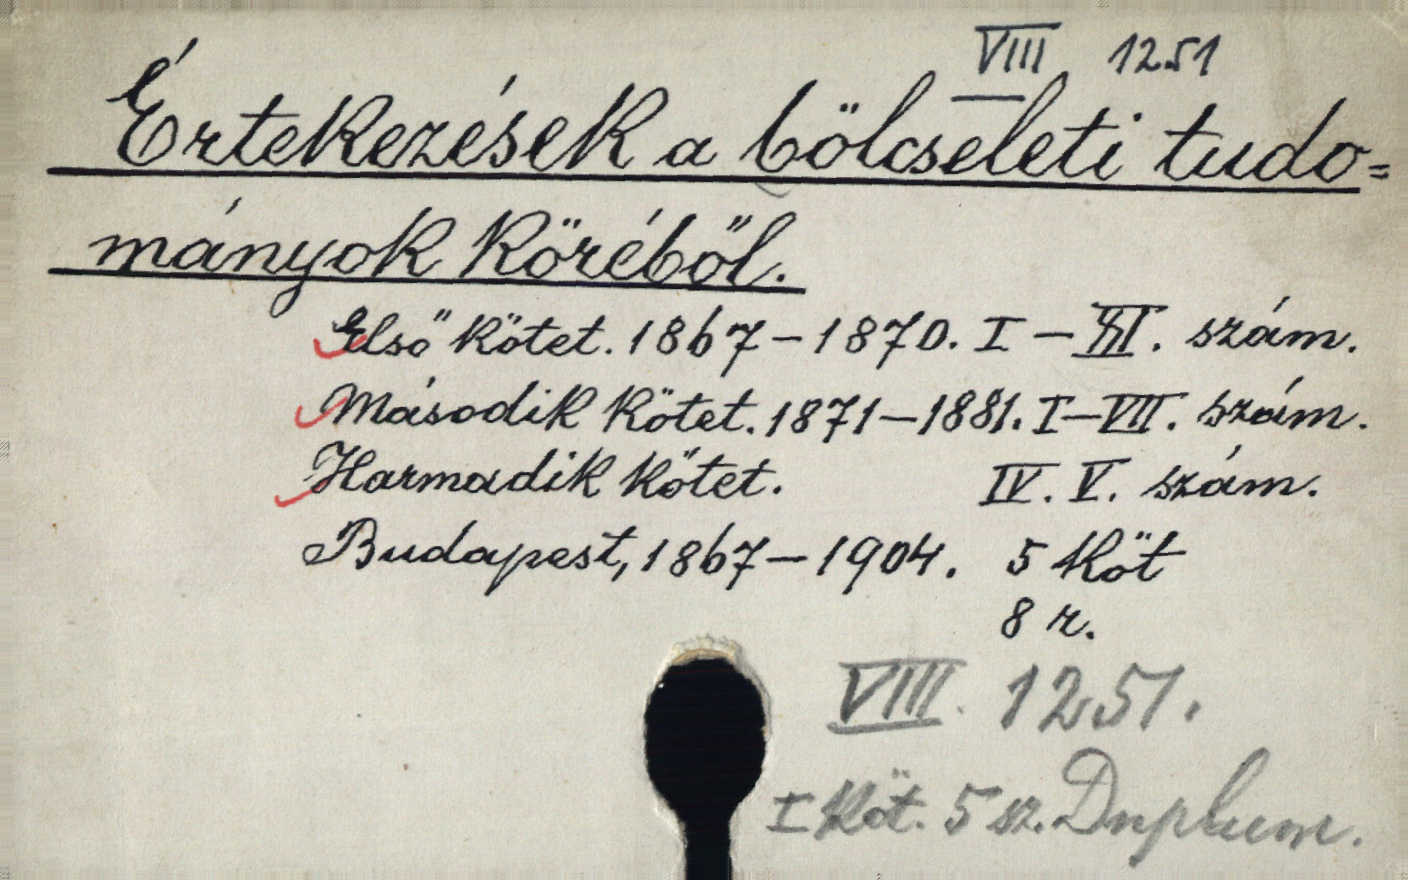 VIII 1251
Értekezések a bölcseleti tudo=
mányok köréből.
Első kötet. 1867-1870. I-XII. szám.
Második kötet. 1871-1881. I-VII. szám.
Harmadik kötet. IV. V. szám.
Budapest, 1867-1904. 5 köt
8 r.
VIII. 1251.
I köt. 5 sz. Duplum.